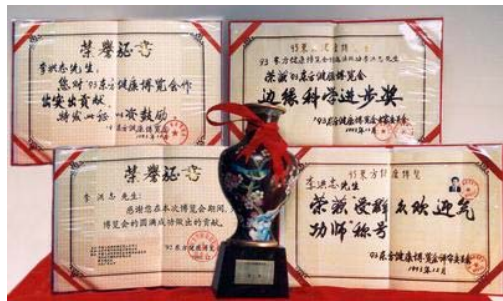 荣誉证书
李洪志先生:
您对'93东方健康博览会作
出突出贡献,
特发此证 以资鼓励
'93东方健康博览会
'93东方健康博览会
荣获'93东方健康博览会
边缘科学进步奖
'93东方健康博览会
1993年12月
荣誉证书
李洪志先生:
感谢您在本次博览会期间,
博览会的圆满成功做出的贡献。
'93东方健康博览会
'93东方健康博览
李洪志先生
荣获"受群众欢迎气
功师"称号
'93东方健康博览会评审委员会
1993年12月